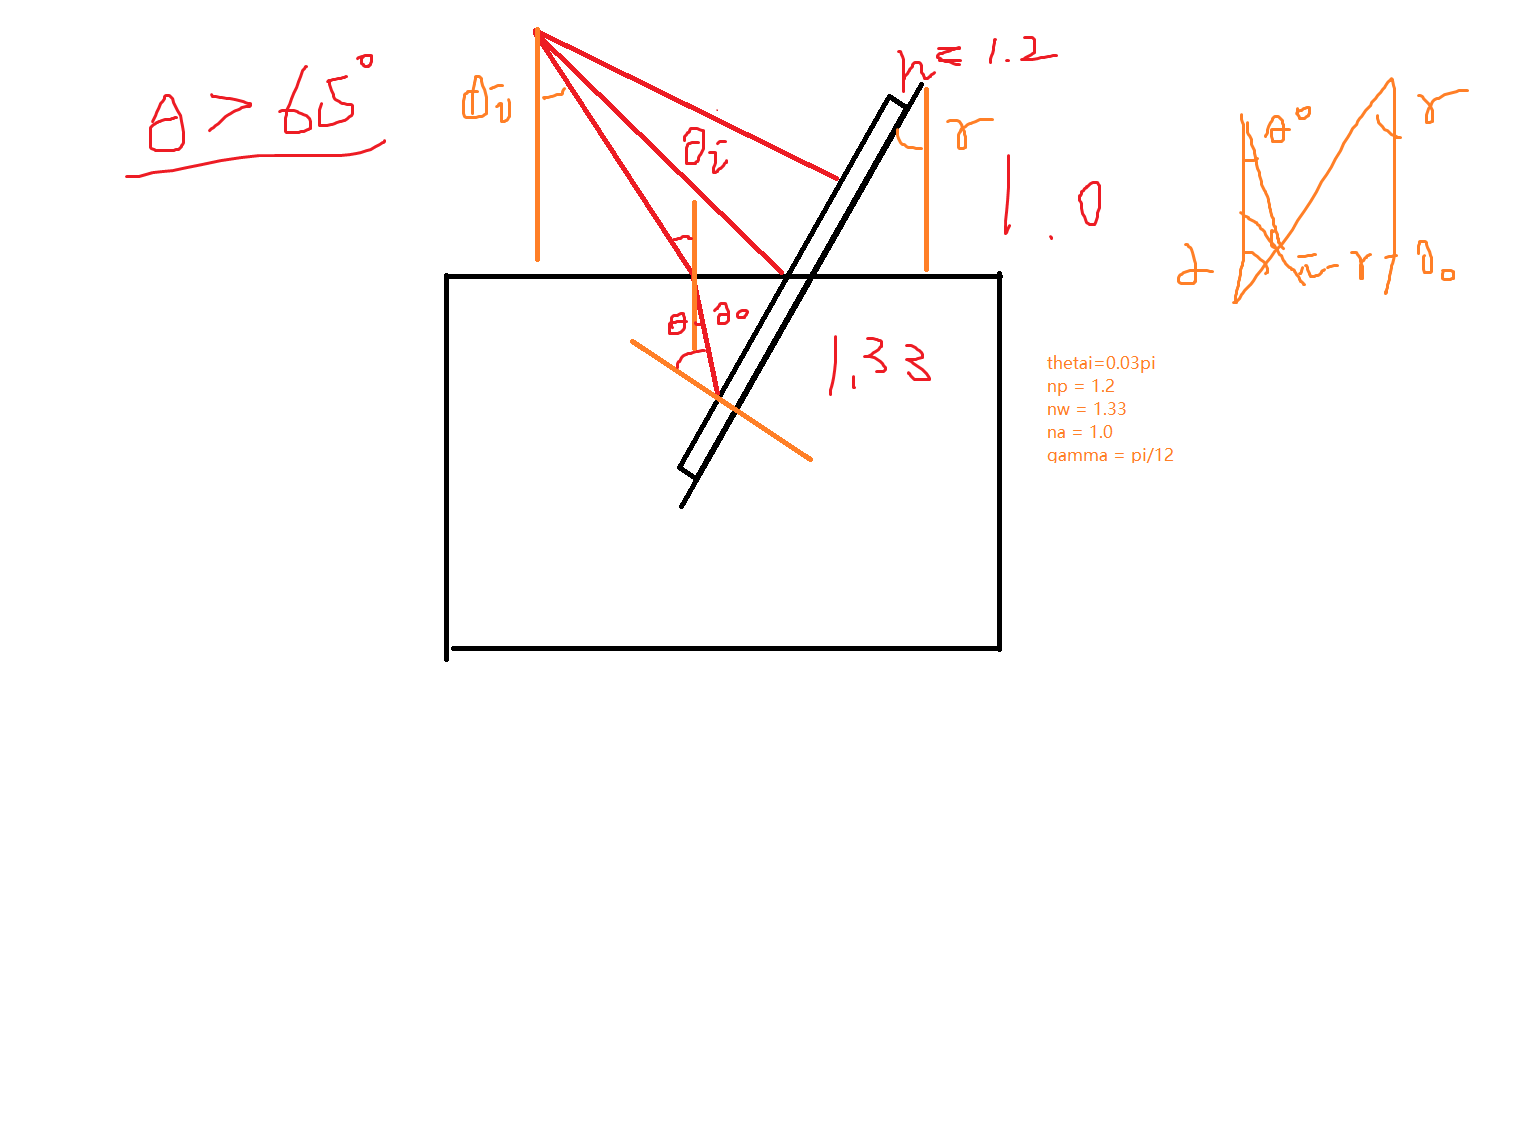 θ > 65°
θi
θi
n = 1.2
γ
1.0
θ θo
1.33
θ°
γ
π-γ-θo
thetai=0.03pi
np = 1.2
nw = 1.33
na = 1.0
gamma = pi/12